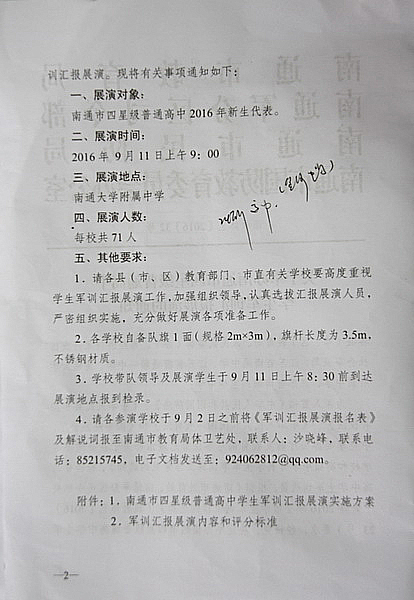 训汇报展演。现将有关事项通知如下：
一、展演对象：
南通市四星级普通高中 2016 年新生代表。
二、展演时间：
2016 年 9 月 11 日上午 9：00
三、展演地点：
南通大学附属中学
四、展演人数：
每校共 71 人
五、其他要求：
1．请各县（市、区）教育部门、市直有关学校要高度重视
学生军训汇报展演工作，加强组织领导，认真选拔汇报展演人员，
严密组织实施，充分做好展演各项准备工作。
2．各学校自备队旗 1 面（规格 2m×3m），旗杆长度为 3.5m，
不锈钢材质。
3．学校带队领导及展演学生于 9 月 11 日上午 8：30 前到达
展演地点报到检录。
4．请各参演学校于 9 月 2 日之前将《军训汇报展演报名表》
及解说词报至南通市教育局体卫艺处，联系人：沙晓峰，联系电
话：85215745，电子文档发送至：924062812@qq.com。
附件：1．南通市四星级普通高中学生军训汇报展演实施方案
2．军训汇报展演内容和评分标准
—2—